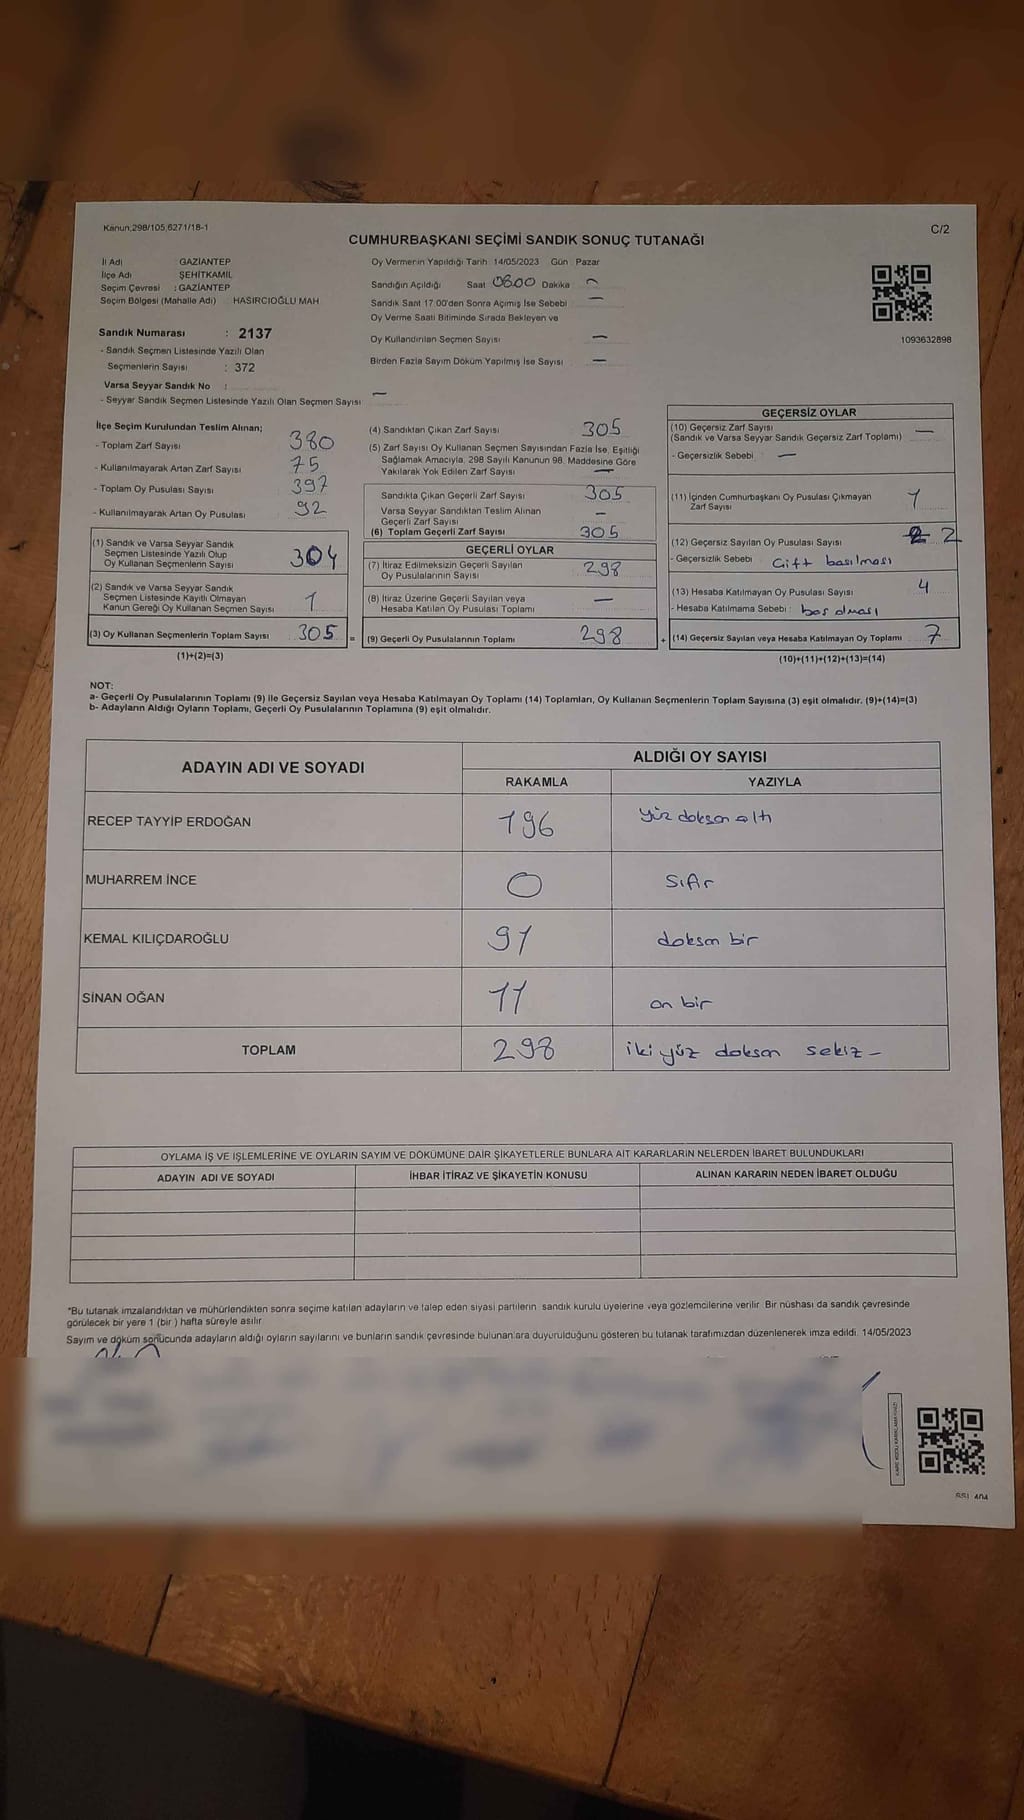 Kanun,298/105,6271/18-1
C/2
CUMHURBAŞKANI SEÇİMİ SANDIK SONUÇ TUTANAĞI
İl Adı GAZİANTEP
İlçe Adı ŞEHİTKAMİL
Seçim Çevresi : GAZİANTEP
Seçim Bölgesi (Mahalle Adı) HASIRCIOĞLU MAH
Sandık Numarası : 2137
- Sandık Seçmen Listesinde Yazılı Olan
Seçmenlerin Sayısı : 372
Varsa Seyyar Sandık No :
- Seyyar Sandık Seçmen Listesinde Yazılı Olan Seçmen Sayısı —
Oy Vermenin Yapıldığı Tarih 14/05/2023 Gün Pazar
Sandığın Açıldığı Saat 0800 Dakika —
Sandık Saat 17.00'den Sonra Açımış İse Sebebi —
Oy Verme Saati Bitiminde Sırada Bekleyen ve
Oy Kullandırılan Seçmen Sayısı —
Birden Fazla Sayım Döküm Yapılmış İse Sayısı —
1093632898
İlçe Seçim Kurulundan Teslim Alınan;
- Toplam Zarf Sayısı 380
- Kullanılmayarak Artan Zarf Sayısı 75
- Toplam Oy Pusulası Sayısı 397
- Kullanılmayarak Artan Oy Pusulası 92
(1) Sandık ve Varsa Seyyar Sandık
Seçmen Listesinde Yazılı Olup
Oy Kullanan Seçmenlerin Sayısı 304
(2) Sandık ve Varsa Seyyar Sandık
Seçmen Listesinde Kayıtlı Olmayan
Kanun Gereği Oy Kullanan Seçmen Sayısı 1
(3) Oy Kullanan Seçmenlerin Toplam Sayısı 305 =
(1)+(2)=(3)
(4) Sandıktan Çıkan Zarf Sayısı 305
(5) Zarf Sayısı Oy Kullanan Seçmen Sayısından Fazla İse, Eşitliği
Sağlamak Amacıyla, 298 Sayılı Kanunun 98. Maddesine Göre
Yakılarak Yok Edilen Zarf Sayısı —
Sandıkta Çıkan Geçerli Zarf Sayısı 305
Varsa Seyyar Sandıktan Teslim Alınan
Geçerli Zarf Sayısı —
(6) Toplam Geçerli Zarf Sayısı 305
GEÇERLİ OYLAR
(7) İtiraz Edilmeksizin Geçerli Sayılan
Oy Pusulalarının Sayısı 298
(8) İtiraz Üzerine Geçerli Sayılan veya
Hesaba Katılan Oy Pusulası Toplamı —
(9) Geçerli Oy Pusulalarının Toplamı 298 +
GEÇERSİZ OYLAR
(10) Geçersiz Zarf Sayısı
(Sandık ve Varsa Seyyar Sandık Geçersiz Zarf Toplamı) —
- Geçersizlik Sebebi —
(11) İçinden Cumhurbaşkanı Oy Pusulası Çıkmayan
Zarf Sayısı 1
(12) Geçersiz Sayılan Oy Pusulası Sayısı 2
- Geçersizlik Sebebi : Çift basılması
(13) Hesaba Katılmayan Oy Pusulası Sayısı 4
- Hesaba Katılmama Sebebi : boş olması
(14) Geçersiz Sayılan veya Hesaba Katılmayan Oy Toplamı 7
(10)+(11)+(12)+(13)=(14)
NOT:
a- Geçerli Oy Pusulalarının Toplamı (9) ile Geçersiz Sayılan veya Hesaba Katılmayan Oy Toplamı (14) Toplamları, Oy Kullanan Seçmenlerin Toplam Sayısına (3) eşit olmalıdır. (9)+(14)=(3)
b- Adayların Aldığı Oyların Toplamı, Geçerli Oy Pusulalarının Toplamına (9) eşit olmalıdır.
ADAYIN ADI VE SOYADI
ALDIĞI OY SAYISI
RAKAMLA YAZIYLA
RECEP TAYYİP ERDOĞAN 196 yüz doksan altı
MUHARREM İNCE 0 sıfır
KEMAL KILIÇDAROĞLU 91 doksan bir
SİNAN OĞAN 11 on bir
TOPLAM 298 iki yüz doksan sekiz –
OYLAMA İŞ VE İŞLEMLERİNE VE OYLARIN SAYIM VE DÖKÜMÜNE DAİR ŞİKAYETLERLE BUNLARA AİT KARARLARIN NELERDEN İBARET BULUNDUKLARI
ADAYIN ADI VE SOYADI İHBAR İTİRAZ VE ŞİKAYETİN KONUSU ALINAN KARARIN NEDEN İBARET OLDUĞU
*Bu tutanak imzalandıktan ve mühürlendikten sonra seçime katılan adayların ve talep eden siyasi partilerin sandık kurulu üyelerine veya gözlemcilerine verilir. Bir nüshası da sandık çevresinde
görülecek bir yere 1 (bir ) hafta süreyle asılır.
Sayım ve döküm sonucunda adayların aldığı oyların sayılarını ve bunların sandık çevresinde bulunanlara duyurulduğunu gösteren bu tutanak tarafımızdan düzenlenerek imza edildi. 14/05/2023